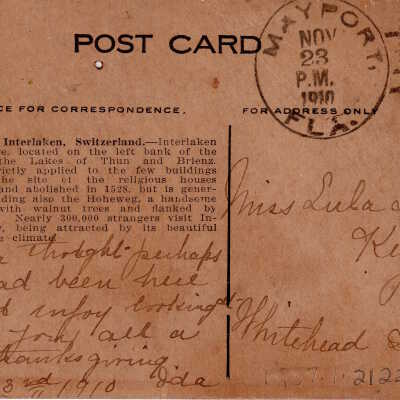 POST CARD
MAYPORT,
NOV
23
P.M.
1910
FLA.
CE FOR CORRESPONDENCE.
FOR ADDRESS ONLY
Interlaken, Switzerland.—Interlaken
e, located on the left bank of the
the Lakes of Thun and Brienz.
rictly applied to the few buildings
he site of the religious houses
and abolished in 1528, but is gener-
ding also the Hoheweg, a handsome
with walnut trees and flanked by
Nearly 300,000 strangers visit In-
y, being attracted by its beautiful
e climate
thought perhaps
ad been here
enjoy looking at
you all a
hanksgiving
3rd 1910 Ida
Miss Lula
Ke
Whitehead S
2122